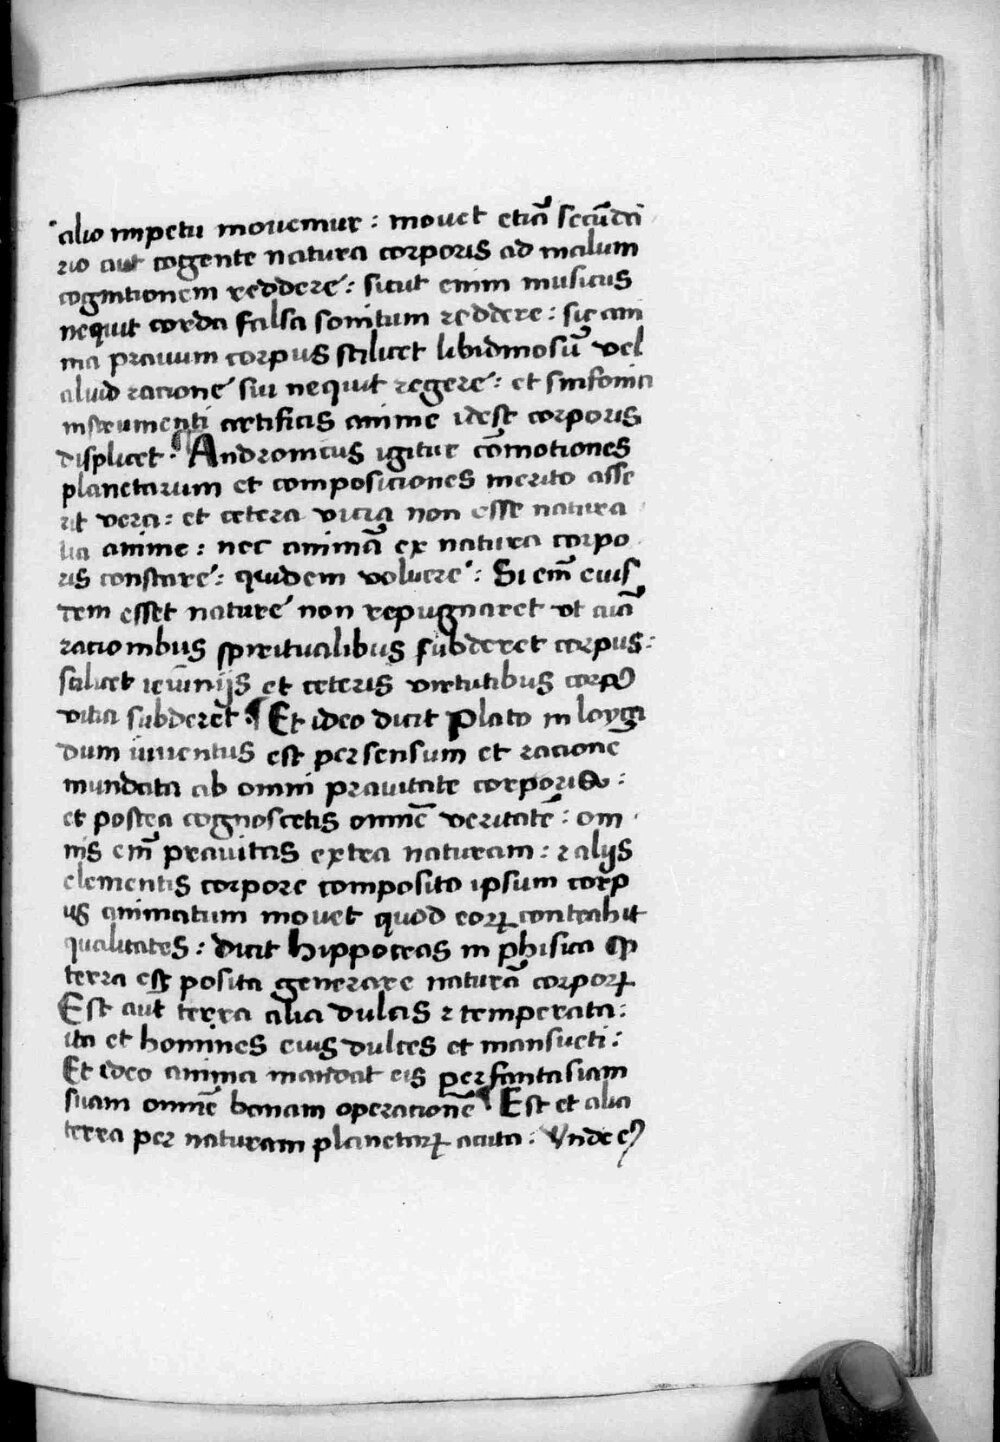 alio impetu mouemur : mouet etiā secūda
rio aut cogente natura corporis ad malum
cogitationem reddere : sicut enim musicus
nequit corda falsa sonitum reddere : sic ani
ma prauum corpus scilicet libidinosū vel
aliud racione sui nequit regere : et sinfonia
instrumenti artificis anime idest corporis
displicet . ¶ Andronicus igitur cōmotiones
planetarum et composiciones merito asse
rit vera : et cetera vicia non esse natura
lia anime : nec animā ex natura corpo
ris constare : quidem voluere : Si em̄ eius
dem esset nature non repugnaret vt
racionibus spiritualibus subderet corpus :
scilicet ieiūnijs et ceteris virtutibus corpꝯ
vitia subderet . ¶ Et ideo dicit Plato in loyca
dum iuuentus est per sensum et racione
mundata ab omni prauitate corporis :
et postea cognoscetis omnē veritatē : om
nis em̄ prauitas extra naturam : ⁊ alijs
elementis corpore composito ipsum corp
us animatum mouet quod eoꝝ contrahit
qualitates : dicit hippocras in phisica
terra est posita generare naturā corpoꝝ
Est aut terra alia dulcis ⁊ temperata :
ita et homines eius dulces et mansueti :
Et ideo anima mandat eis per fantasiam
suam omnē bonam operacionē ¶ Est et alia
terra per naturam planetaꝝ acuta : Vnde eꝰ